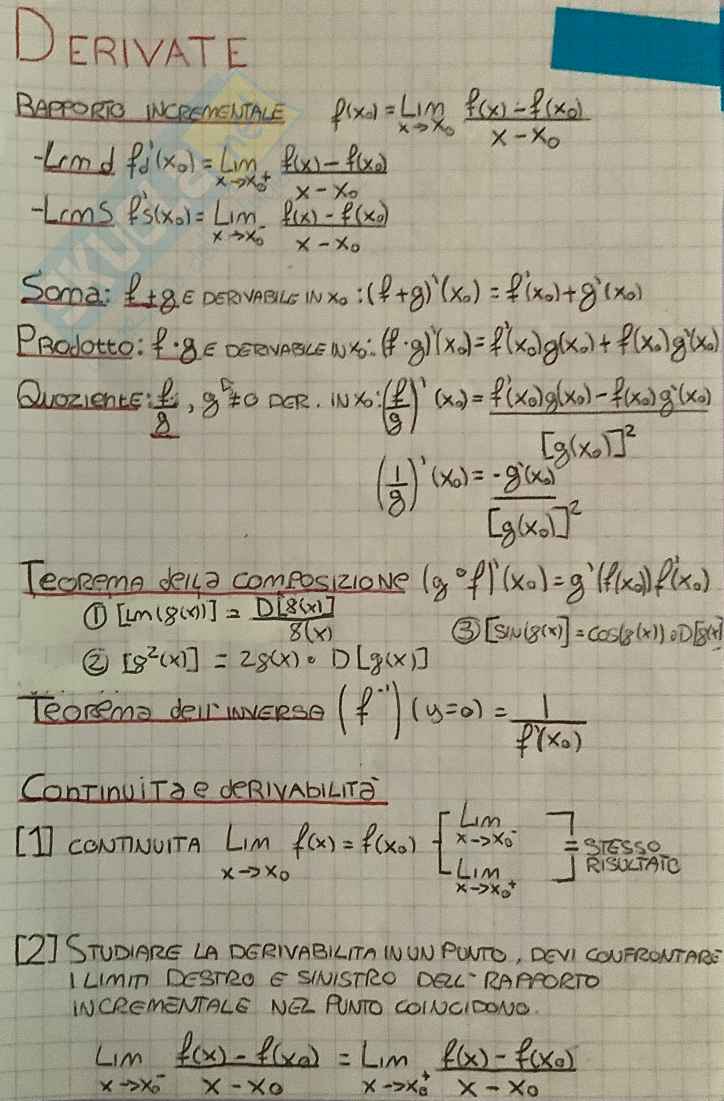 DERIVATE
RAPPORTO INCREMENTALE f(x₀) = Lim x→x₀ f(x) - f(x₀) / x - x₀
- Lrm d fd'(x₀) = Lim x→x₀⁺ f(x) - f(x₀) / x - x₀
- Lrm S fs'(x₀) = Lim x→x₀⁻ f(x) - f(x₀) / x - x₀
Soma: f + g E DERIVABILE IN x₀ : (f + g)'(x₀) = f'(x₀) + g'(x₀)
PRODOTTO: f · g E DERIVABILE IN x₀: (f · g)'(x₀) = f'(x₀)g(x₀) + f(x₀)g'(x₀)
QUOZIENTE: f/g, g ≠ 0 DER. IN x₀: (f/g)'(x₀) = f'(x₀)g(x₀) - f(x₀)g'(x₀) / [g(x₀)]²
(1/g)'(x₀) = -g'(x₀) / [g(x₀)]²
TEOREMA DELLA COMPOSIZIONE (g ∘ f)'(x₀) = g'(f(x₀))f'(x₀)
① [Ln(g(x))] = D[g(x)] / g(x)
③ [SIN(g(x)] = COS(g(x)) ∘ D[g(x)
② [g²(x)] = 2g(x) ∘ D[g(x)]
TEOREMA DELL'INVERSA (f⁻¹)(y=0) = 1 / f'(x₀)
CONTINUITA e DERIVABILITÀ
[1] CONTINUITA Lim x→x₀ f(x) = f(x₀) [Lim x→x₀⁻ Lim x→x₀⁺] = STESSO RISULTATO
[2] STUDIARE LA DERIVABILITA IN UN PUNTO, DEVI CONFRONTARE
I LIMITI DESTRO E SINISTRO DELL'RAPPORTO
INCREMENTALE NEL PUNTO COINCIDONO.
Lim x→x₀⁻ f(x) - f(x₀) / x - x₀ = Lim x→x₀⁺ f(x) - f(x₀) / x - x₀